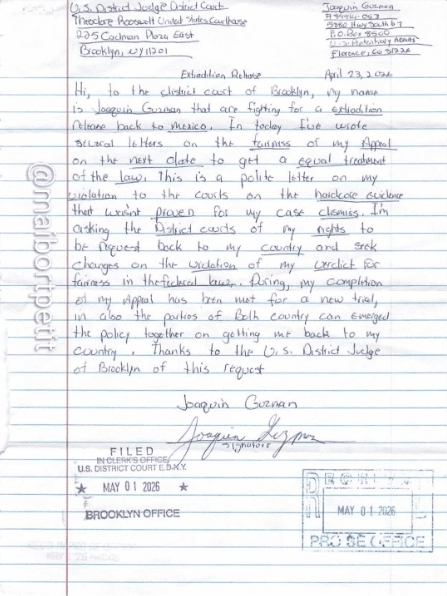 U.S. District Judge District Court
Theodore Roosevelt United States Courthouse
225 Cadman Plaza East
Brooklyn, NY 11201
Joaquin Guzman
5880 Hwy South 67
P.O. Box 8500
Florence, CO 81226
Extradition Release
April 23, 2026
Hi, to the district court of Brooklyn, my name
is Joaquin Guzman that are fighting for a extradition
release back to Mexico. In today I've wrote
several letters on the fairness of my Appeal
on the next date to get a equal treatment
of the law. This is a polite letter on my
violation to the courts on the hardcore evidence
that wasn't proven for my case dismiss. I'm
asking the District courts of my rights to
be request back to my country and seek
changes on the violation of my verdict for
fairness in the federal law. During, my completion
of my Appeal has been met for a new trial,
in also the parties of Both country can emerged
the policy together on getting me back to my
country. Thanks to the U.S. District Judge
of Brooklyn of this request
Joaquin Guzman
Signature
FILED
IN CLERK'S OFFICE
U.S. DISTRICT COURT E.D.N.Y.
★ MAY 01 2026 ★
BROOKLYN OFFICE
MAY 01 2026
PRO SE OFFICE
@malbortpetit